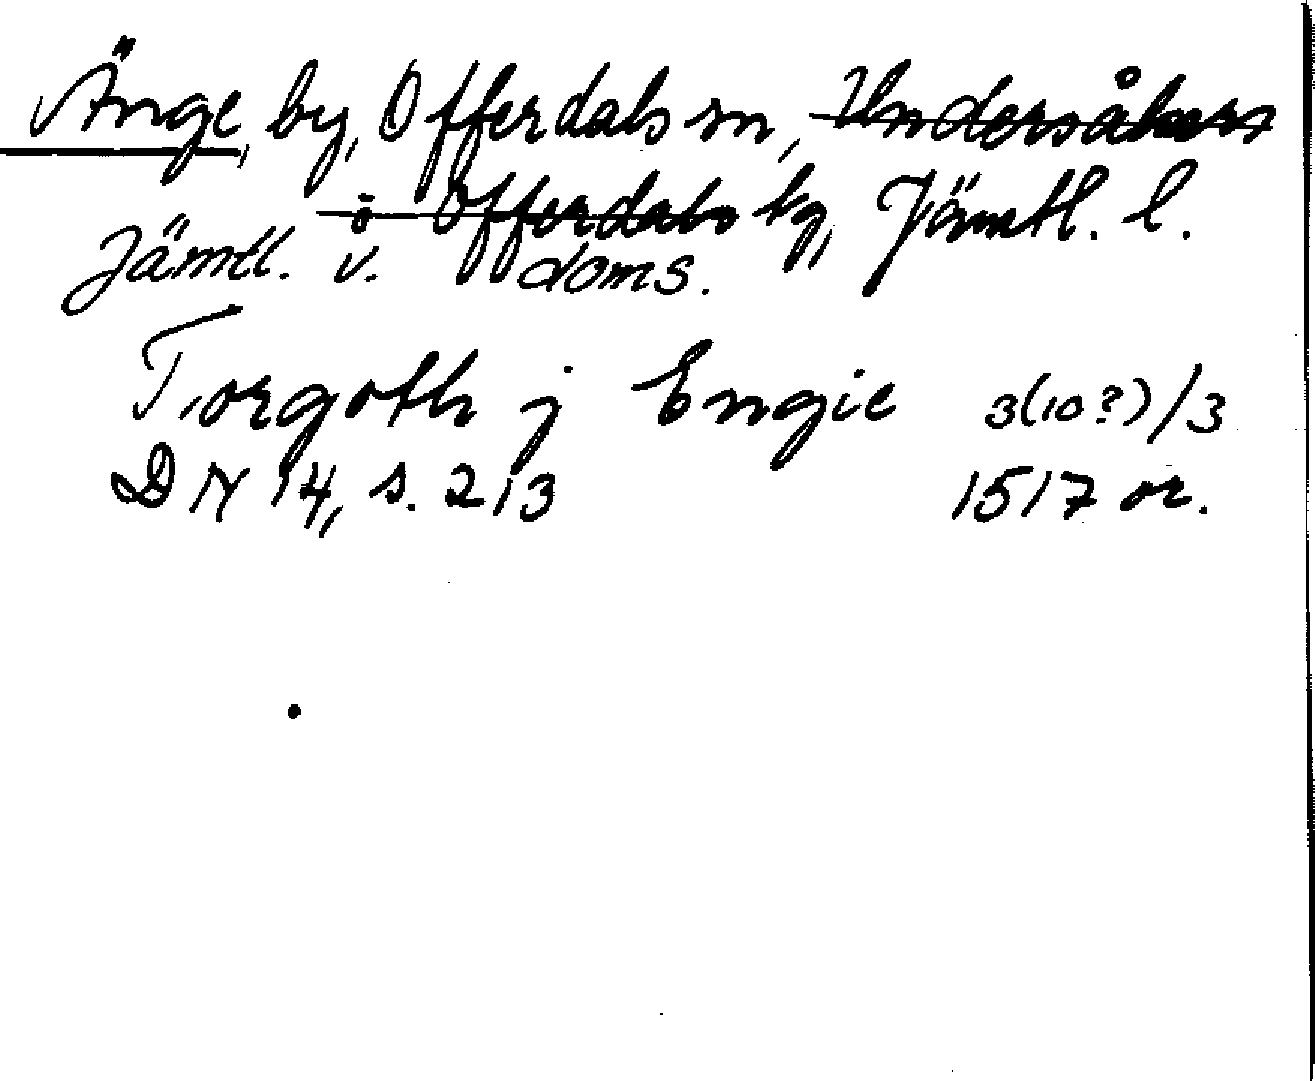 Änge, by, Offerdals sn, Undersåkers
o Offerdals tg, Jämtl. l.
Jämtl. v. doms.
Torgoth j Engie 3(10?)/3
DN 14, s. 213 1517 or.